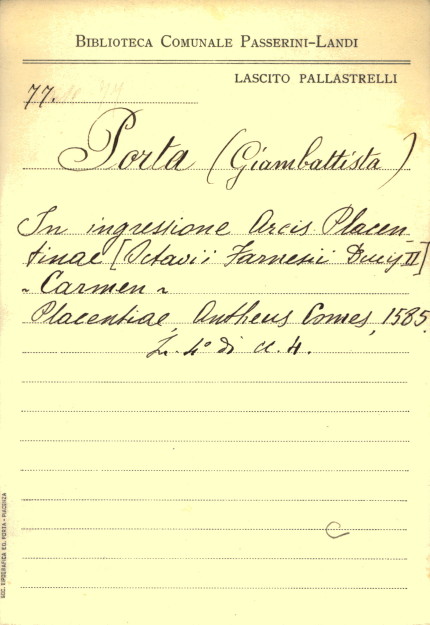 BIBLIOTECA COMUNALE PASSERINI-LANDI
LASCITO PALLASTRELLI
77.
Porta (Giambattista)
In ingressione Arcis Placen-
tinae [Octavii Farnesii Ducis II]
- Carmen -
Placentiae, Antheus Comes, 1585.
In 4° di c. 4.
SOC. TIPOGRAFICA ED. PORTA - PIACENZA